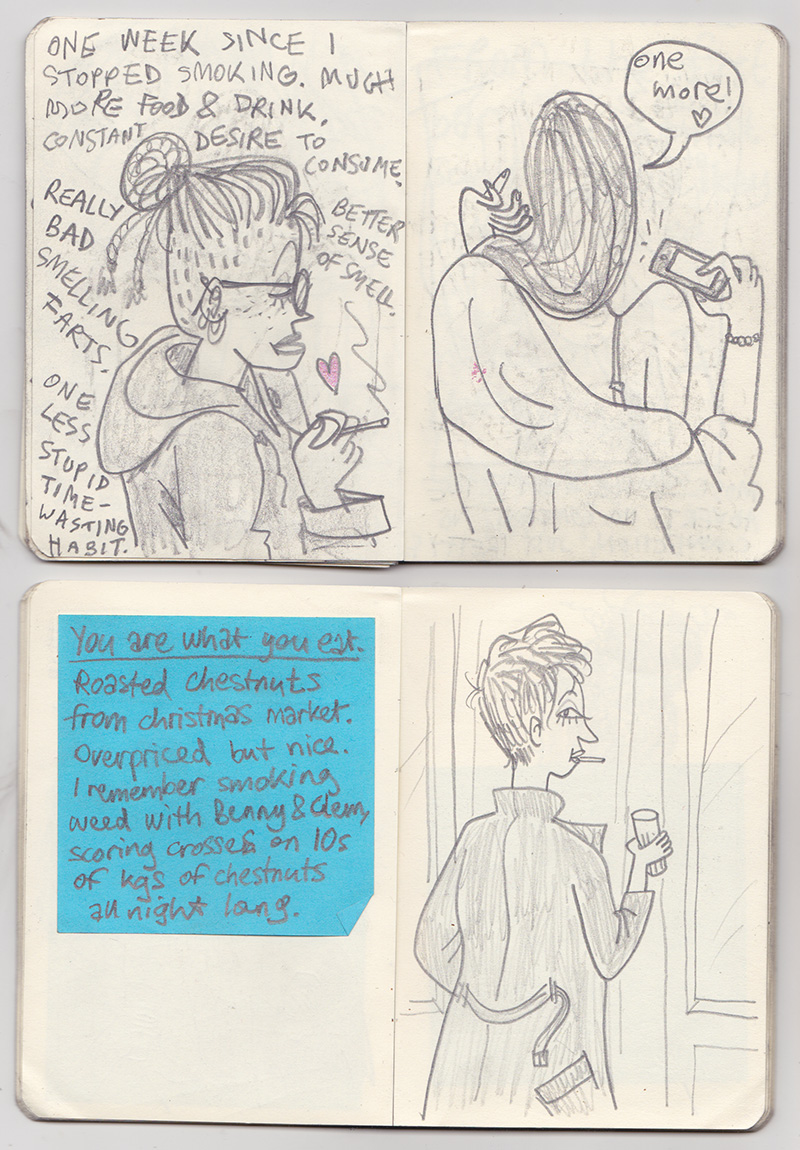 ONE WEEK SINCE I
STOPPED SMOKING. MUCH
MORE FOOD & DRINK.
CONSTANT DESIRE TO
CONSUME.
REALLY
BAD
SMELLING
FARTS.
BETTER
SENSE
OF SMELL.
ONE
LESS
STUPID
TIME-
WASTING
HABIT.
one
more!
You are what you eat.
Roasted chestnuts
from christmas market.
Overpriced but nice.
I remember smoking
weed with Benny & Clem,
scoring crosses on 10s
of kgs of chestnuts
all night long.